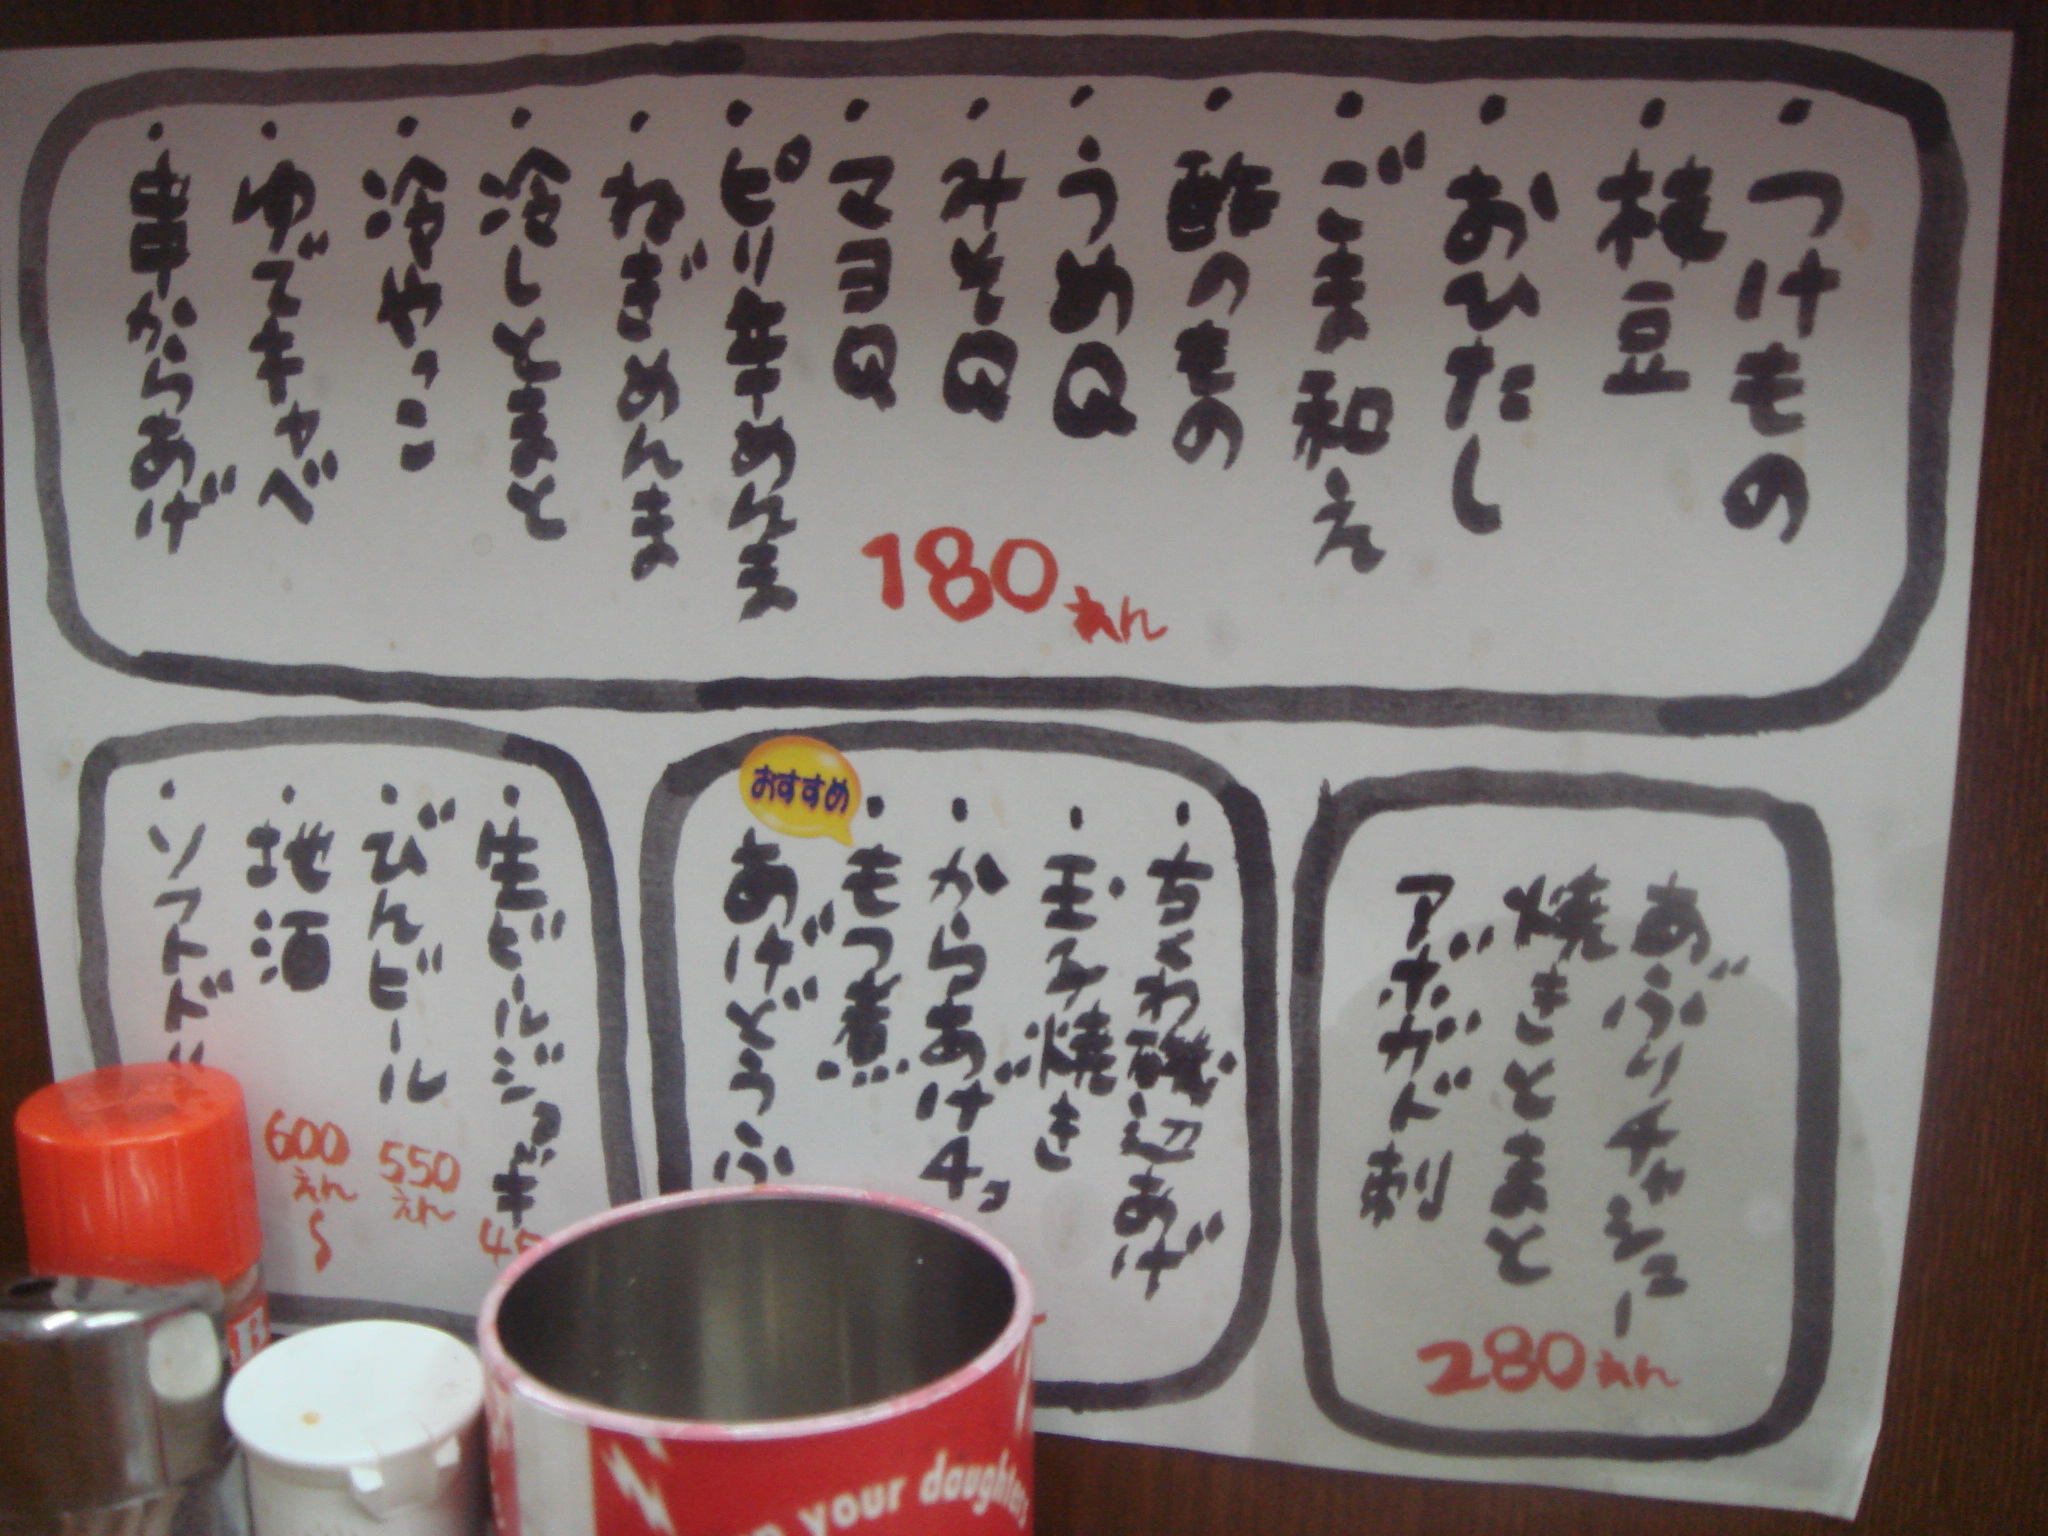 ・つけもの
・枝豆
・おひたし
・ごま和え
・酢のもの
・うめQ
・みそQ
・マヨQ
・ピリ辛めんま
・ねぎめんま
・冷しとまと
・冷やっこ
・ゆでキャベ
・串からあげ
180えん
あぶりチャシュー
焼きとまと
アボガド刺
280えん
・ちくわ磯辺あげ
・玉子焼き
・からあげ4コ
・もつ煮
おすすめ
あげどうふ
・生ビールジョッキ
45
・びんビール
550えん
・地酒
600えん〜
・ソフトドリ
your daughters